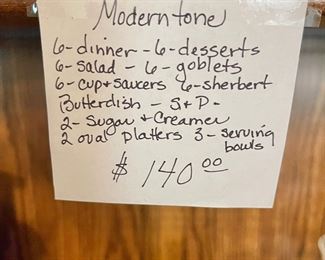 Moderntone
6- dinner - 6- desserts
6- salad - 6- goblets
6- cup & saucers 6- sherbert
Butterdish - S & P -
2- Sugar & Creamer
2 oval platters 3- serving
bowls
$ 140.00